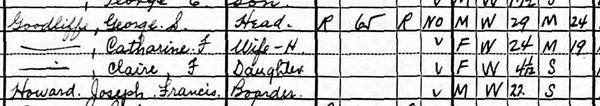 George C. Son
Goodliffe, George S. Head R 65 R NO M W 29 M 24
—, Catharine F Wife-H V F W 24 M 19
—, Claire, F Daughter V F W 4/12 S
Howard Joseph Francis Boarder V M W 22 S